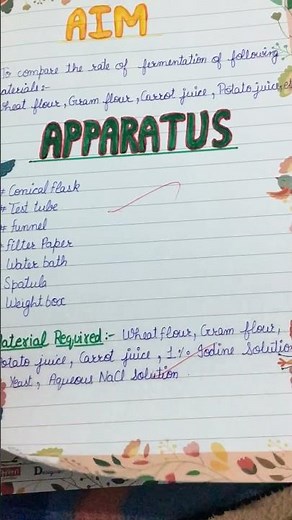 AIM
To compare the rate of fermentation of following
materials:-
Wheat flour, Gram flour, Carrot juice, Potato juice, etc
APPARATUS
* Conical flask
* Test tube
* funnel
* Filter Paper
Water bath
Spatula
Weight box
Material Required:- Wheat flour, Gram flour,
Potato juice, Carrot juice, 1% Iodine Solution
Yeast, Aqueous NaCl Solution